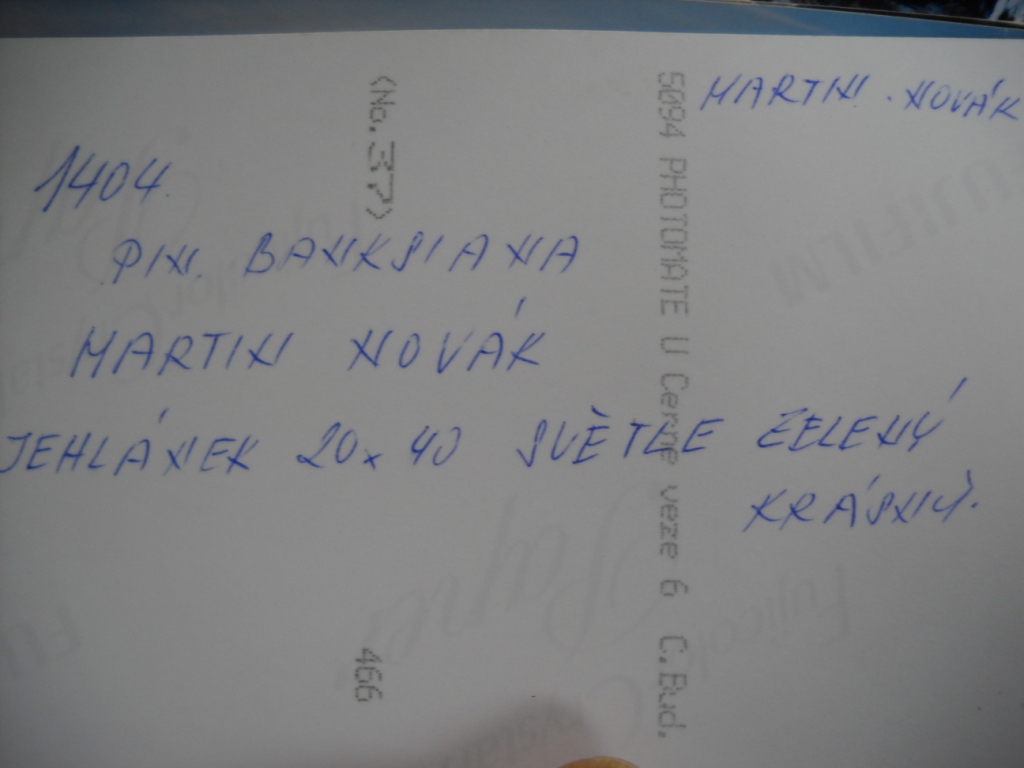 MARTIN . NOVÁK
1404.
PIN. BANKSIANA
MARTIN NOVÁK
JEHLÁNEK 20x40 SVĚTLE ZELENÝ
KRÁSNÝ.
<No. 37>
466
5094 PHOTOMATE U Cerne veze 6 C.Bud.
FUJIFILM
Paper